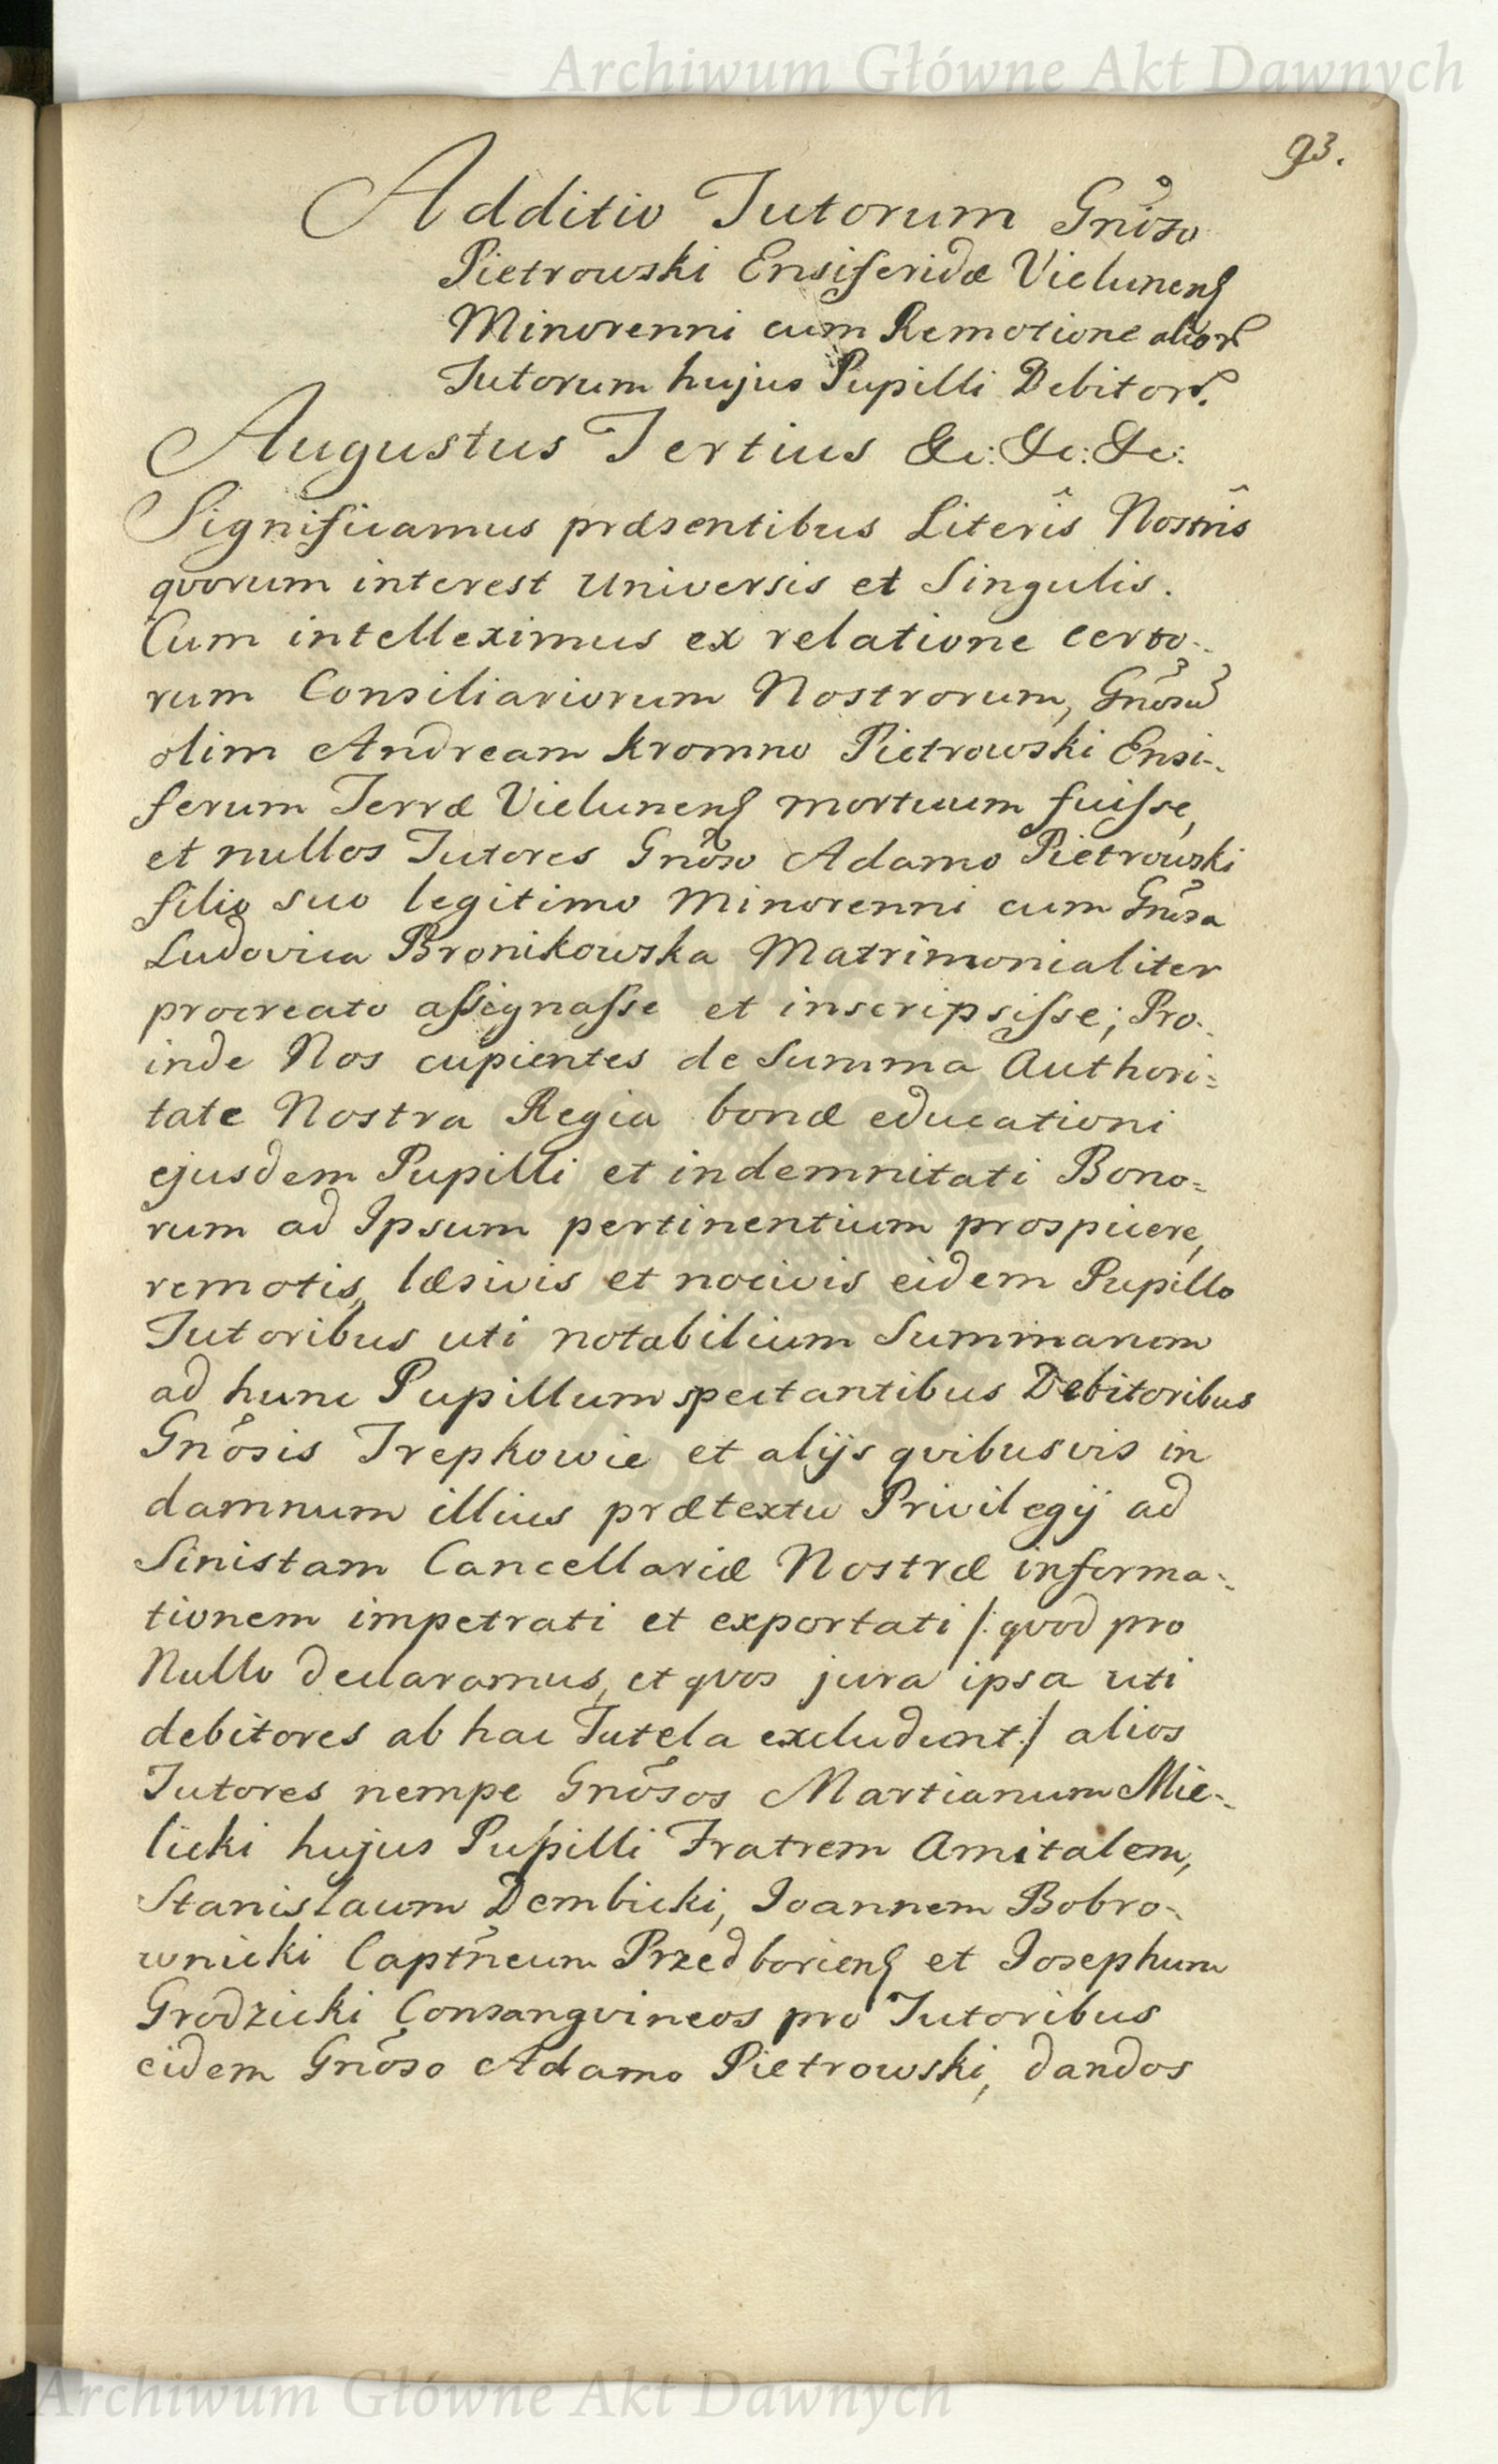 Archiwum Główne Akt Dawnych
93.
Additio Tutorum Gnoso
Pietrowski Ensiferidæ Vielunens
Minorenni cum Remotione alior
Tutorum hujus Pupilli Debitor.
Augustus Tertius &c: &c: &c:
Significamus præsentibus Literis Nostris
quorum interest Universis et Singulis.
Cum intelleximus ex relatione certo-
rum Consiliariorum Nostrorum, Gnosu
olim Andream Kromno Pietrowski Ensi-
ferum Terræ Vielunens mortuum fuisse,
et nullos Tutores Gnoso Adamo Pietrowski
filio suo legitimo Minorenni cum Gnosa
Ludovica Bronikowska Matrimonialiter
procreato assignasse et inscripsisse; Pro-
inde Nos cupientes de Summa Authori=
tate Nostra Regia bonæ educationi
ejusdem Pupilli et indemnitati Bono=
rum ad Ipsum pertinentium prospicere,
remotis, læsivis et nocivis eidem Pupillo
Tutoribus uti notabilium Summarum
ad hunc Pupillum spectantibus Debitoribus
Gnosis Trepkowie et alijs quibusvis in
damnum illius prætextu Privilegij ad
Sinistam Cancellariæ Nostræ informa-
tionem impetrati et exportati /: quod pro
Nullo declaramus, et quos jura ipsa uti
debitores ab hac Tutela excludunt :/ alios
Tutores nempe Gnosos Martianum Mie-
licki hujus Pupilli Fratrem Amitalem,
Stanislaum Dembicki, Joannem Bobro-
wnicki Captneum Przedboriens et Josephum
Grodzicki Consangvineos pro Tutoribus
eidem Gnoso Adamo Pietrowski, dandos
Archiwum Główne Akt Dawnych